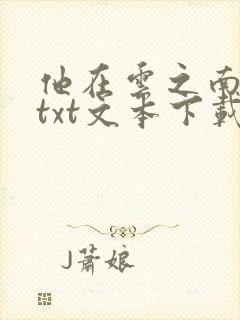 他在云之南
txt文本下載
J萧娘